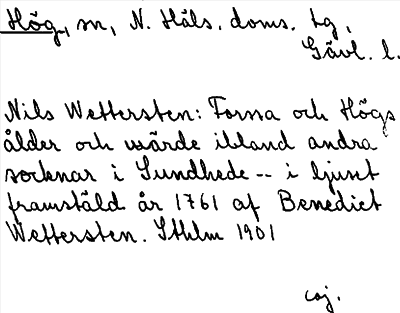 Hög, sn, N. Häls. doms. tg,
Gävl. l.
Nils Wettersten: Forssa och Högs
ålder och värde ibland andra
socknar i Sundhede -- i ljuset
framstäld år 1761 af Benedict
Wettersten. Sthlm 1901